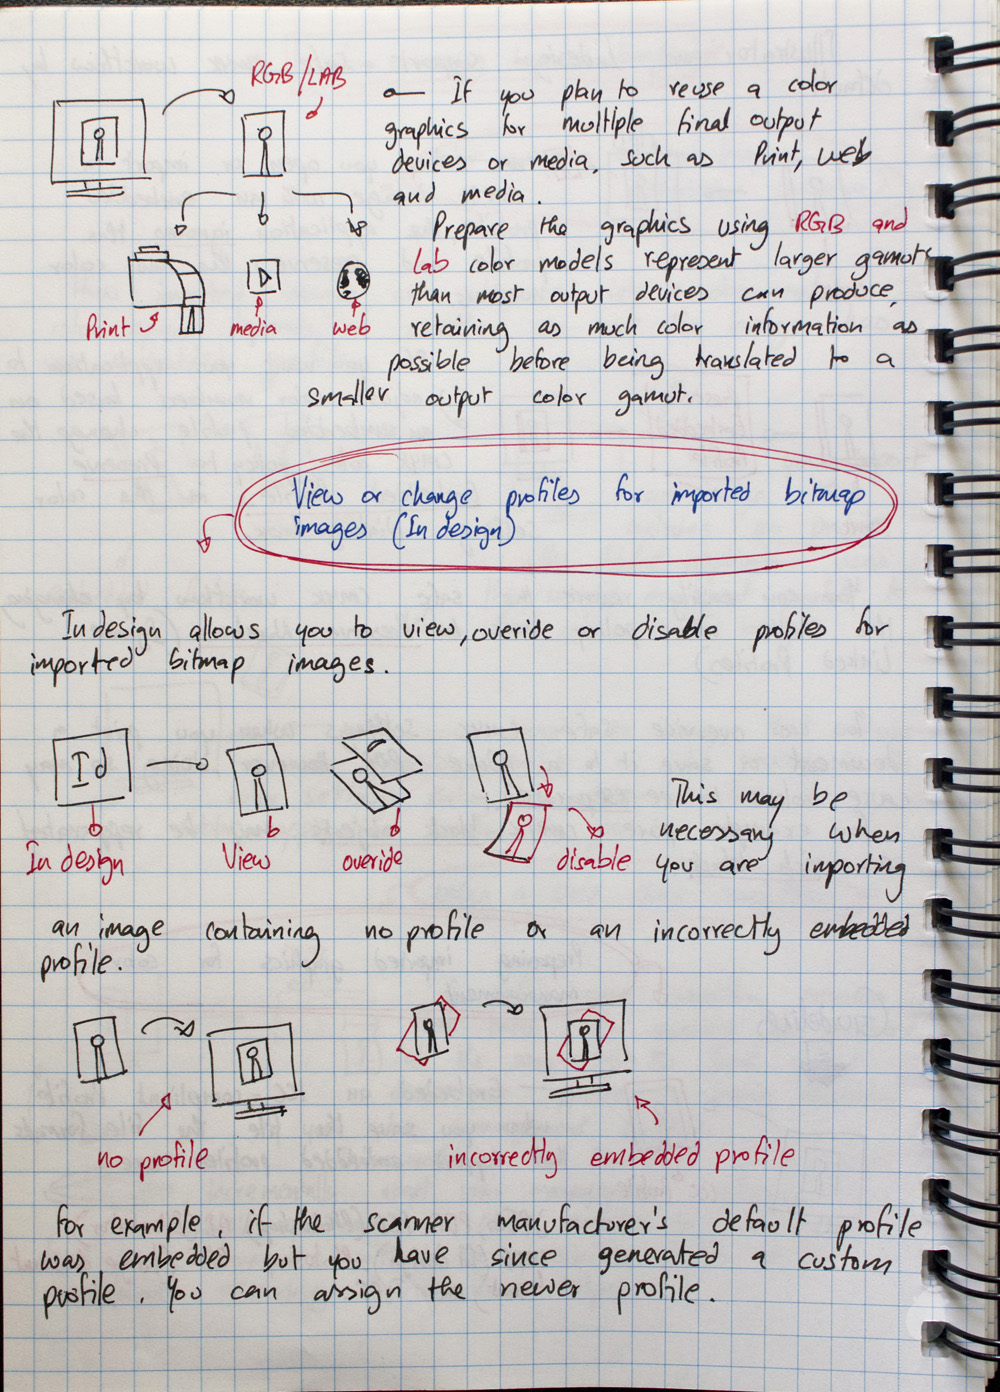 RGB/LAB
If you plan to reuse a color
graphics for multiple final output
devices or media, such as Print, web
and media.
Prepare the graphics using RGB and
Lab color models represent larger gamuts
than most output devices can produce,
retaining as much color information as
possible before being translated to a
smaller output color gamut.
Print
media
web
View or change profiles for imported bitmap
images (In design)
In design allows you to view, overide or disable profiles for
imported bitmap images.
Id
In design
View
overide
disable
This may be
necessary when
you are importing
an image containing no profile or an incorrectly embedded
profile.
no profile
incorrectly embedded profile
for example, if the scanner manufacturer's default profile
was embedded but you have since generated a custom
profile. You can assign the newer profile.